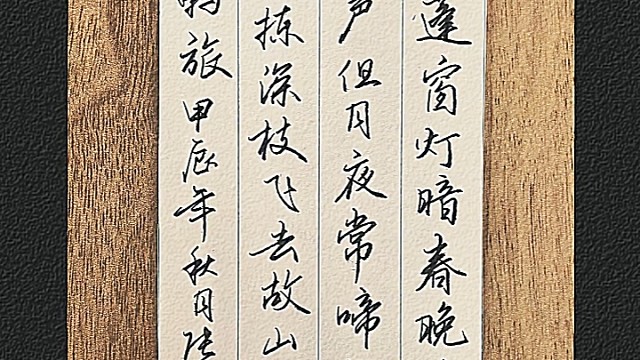 蓬窗灯暗春晚
声但月夜常啼
拣深枝飞去故山
羁旅甲辰年秋月张